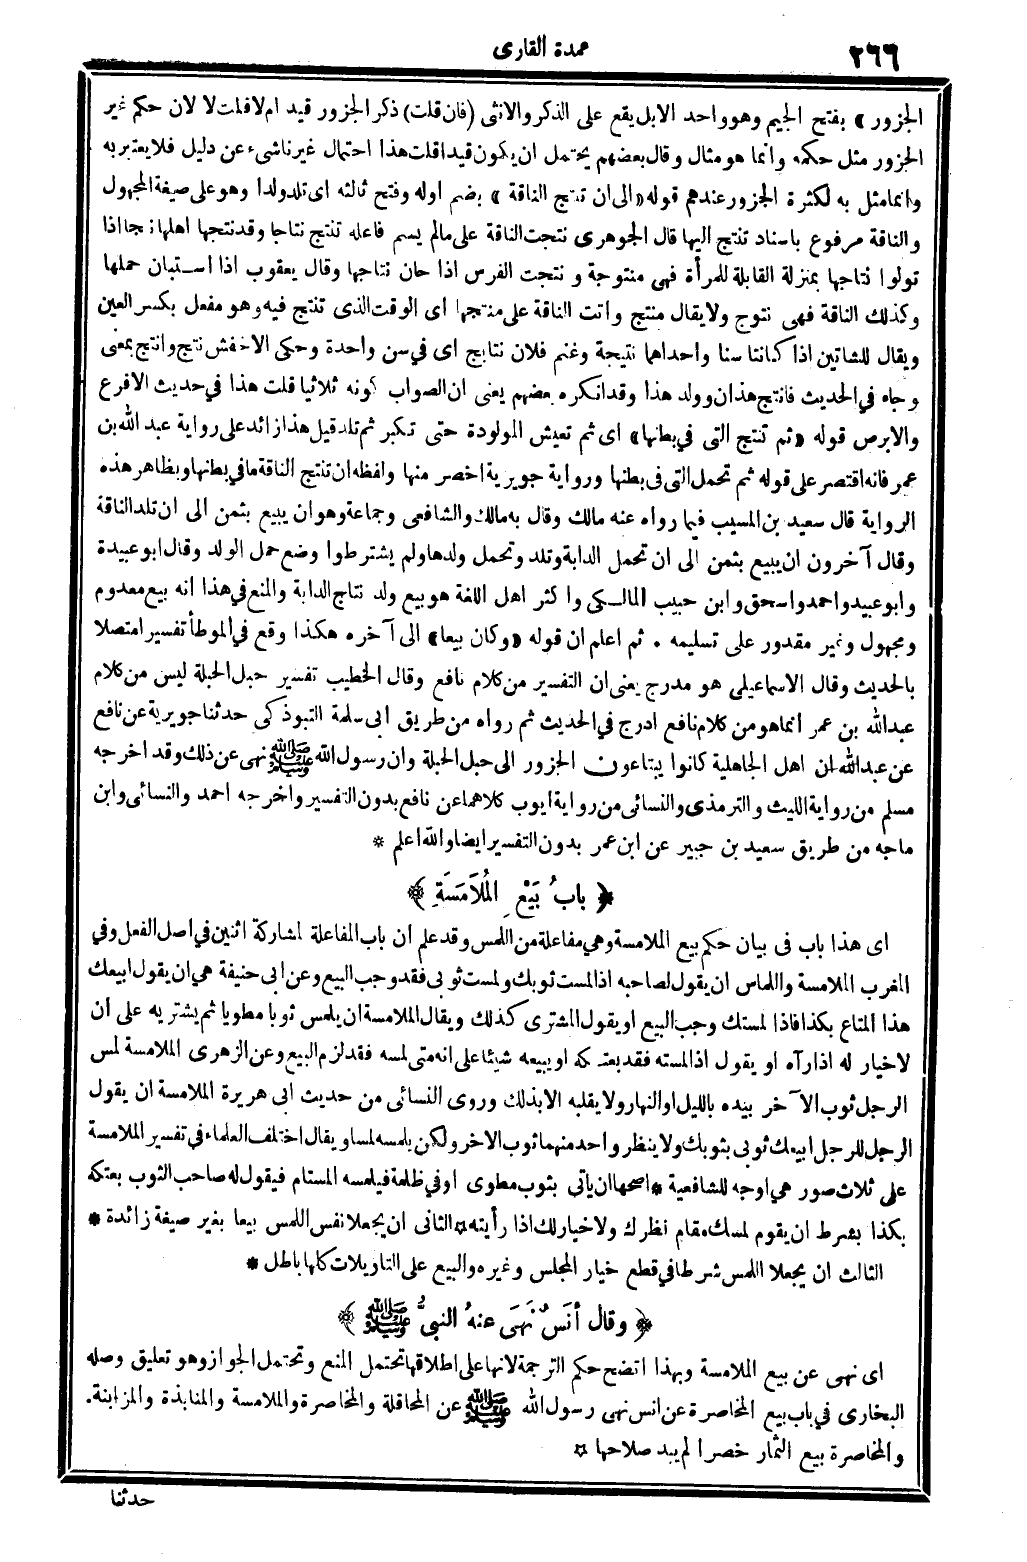 ٢٦٦
عمدة القارى
الجزور ﴾ بفتح الجيم وهو واحد الابل يقع على الذكر والانثى (فان قلت) ذكر الجزور قيد ام لا قلت لا لان حكم غير
الجزور مثل حكمه وانما هو مثال وقال بعضهم يحتمل ان يكون قيدا قلت هذا احتمال غير ناشىء عن دليل فلا يعتبر به
وانما مثل به لكثرة الجزور عندهم قوله «الى ان تنتج الناقة» بضم اوله وفتح ثالثه اى تلد ولدا وهو على صيغة المجهول
والناقة مرفوع باسناد تنتج اليها قال الجوهرى نتجت الناقة على مالم يسم فاعله تنتج نتاجا وقد نتجها اهلها نتجا اذا
تولوا نتاجها بمنزلة القابلة للمرأة فهى منتوجة و نتجت الفرس اذا حان نتاجها وقال يعقوب اذا استبان حملها
وكذلك الناقة فهى نتوج ولا يقال منتج واتت الناقة على منتجها اى الوقت الذى تنتج فيه وهو مفعل بكسر العين
ويقال للشاتين اذا كانتا سنا واحداها نتيجة وغنم فلان نتايج اى في سن واحدة وحكى الاخفش نتج وانتج بمعنى
وجاء في الحديث فانتج هذان وولد هذا وقد انكره بعضهم يعنى ان الصواب كونه ثلاثيا قلت هذا في حديث الاقرع
والابرص قوله «ثم تنتج التى في بطنها» اى ثم تعيش المولودة حتى تكبر ثم تلد قيل هذا زائد على رواية عبد الله بن
عمر فانه اقتصر على قوله ثم تحمل التى فى بطنها ورواية جويرية اخصر منها ولفظه ان تنتج الناقة ما في بطنها وبظاهر هذه
الرواية قال سعيد بن المسيب فيما رواه عنه مالك وقال به مالك والشافعى وجماعة وهو ان يبيع بثمن الى ان تلد الناقة
وقال آخرون ان يبيع بثمن الى ان تحمل الدابة وتلد وتحمل ولدها ولم يشترطوا وضع حمل الولد وقال ابو عبيدة
وابو عبيد واحمد واسحق وابن حبيب المالكى واكثر اهل اللغة هو بيع ولد نتاج الدابة والمنع في هذا انه بيع معدوم
ومجهول وغير مقدور على تسليمه . ثم اعلم ان قوله «وكان بيعا» الى آخره هكذا وقع في الموطأ تفسير امتصلا
بالحديث وقال الاسماعيلى هو مدرج يعنى ان التفسير من كلام نافع وقال الخطيب تفسير حبل الحبلة ليس من كلام
عبدالله بن عمر انما هو من كلام نافع ادرج في الحديث ثم رواه من طريق ابى سلمة التبوذكى حدثنا جويرية عن نافع
عن عبدالله ان اهل الجاهلية كانوا يبتاعون الجزور الى حبل الحبلة وان رسول الله ﷺ نهى عن ذلك وقد اخرجه
مسلم من رواية الليث والترمذى والنسائى من رواية ايوب كلاهما عن نافع بدون التفسير واخرجه احمد والنسائى وابن
ماجه من طريق سعيد بن جبير عن ابن عمر بدون التفسير ايضا والله اعلم *
﴿ بابُ بَيْعِ المُلاَمَسَةِ ﴾
اى هذا باب فى بيان حكم بيع الملامسة وهي مفاعلة من اللمس وقد علم ان باب المفاعلة لمشاركة اثنين في اصل الفعل وفي
المغرب الملامسة واللماس ان يقول لصاحبه اذا لمست ثوبك ولمست ثوبى فقد وجب البيع وعن ابى حنيفة هي ان يقول ابيعك
هذا المتاع بكذا فاذا لمستك وجب البيع او يقول المشترى كذلك ويقال الملامسة ان يلمس ثوبا مطويا ثم يشتريه على أن
لا خيار له اذا رآه او يقول اذا لمسته فقد بعتكه او يبيعه شيئا على انه متى لمسه فقد لزم البيع وعن الزهرى الملامسة لمس
الرجل ثوب الآخر بيده بالليل او النهار ولا يقلبه الا بذلك وروى النسائى من حديث ابى هريرة الملامسة ان يقول
الرجل للرجل ابيعك ثوبى بثوبك ولا ينظر واحد منهما ثوب الاخر ولكن يلمسه لمسا ويقال اختلف العلماء في تفسير الملامسة
على ثلاث صور هي اوجه للشافعية * اصحها ان يأتى بثوب مطوى او في ظلمة فيلمسه المستام فيقول له صاحب الثوب بعتكه
بكذا بشرط ان يقوم لمسك مقام نظرك ولا خيار لك اذا رأيته * الثانى ان يجعلا نفس اللمس بيعا بغير صيغة زائدة *
الثالث ان يجعلا اللمس شرطا في قطع خيار المجلس وغيره والبيع على التاويلات كلها باطل *
﴿ وقال أنَسٌ نَهَى عنهُ النبىُّ ﷺ ﴾
اى نهى عن بيع الملامسة وبهذا اتضح حكم الترجمة لانها على اطلاقها تحتمل المنع وتحتمل الجواز وهو تعليق وصله
البخارى في باب بيع المخاصرة عن انس نهى رسول الله ﷺ عن المحاقلة والمخاصرة والملامسة والمنابذة والمزابنة.
والمخاصرة بيع الثمار خصرا لم يبد صلاحها *
حدثنا